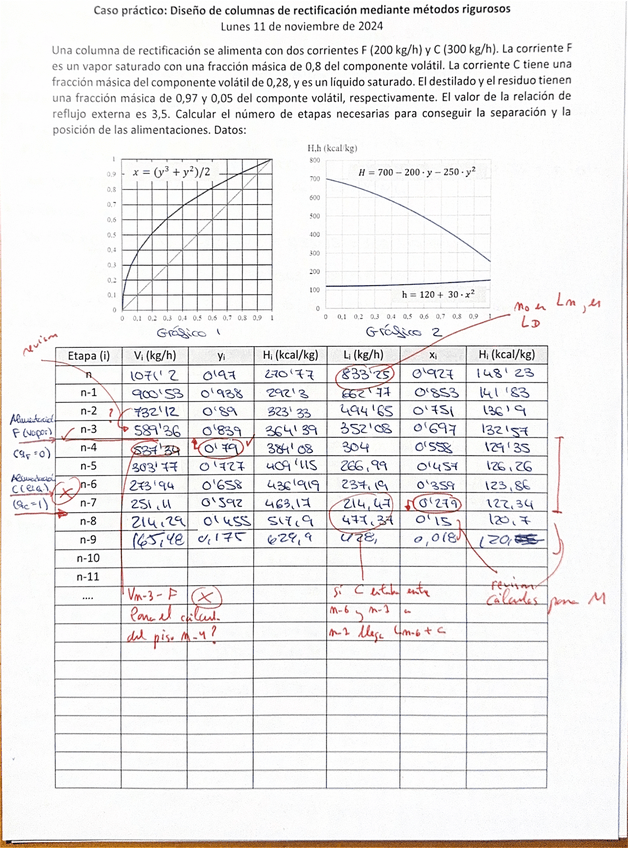 Caso práctico: Diseño de columnas de rectificación mediante métodos rigurosos
Lunes 11 de noviembre de 2024
Una columna de rectificación se alimenta con dos corrientes F (200 kg/h) y C (300 kg/h). La corriente F
es un vapor saturado con una fracción másica de 0,8 del componente volátil. La corriente C tiene una
fracción másica del componente volátil de 0,28, y es un líquido saturado. El destilado y el residuo tienen
una fracción másica de 0,97 y 0,05 del componte volátil, respectivamente. El valor de la relación de
reflujo externa es 3,5. Calcular el número de etapas necesarias para conseguir la separación y la
posición de las alimentaciones. Datos:
H,h (kcal/kg)
x = (y³ + y²)/2
1
0,9
0,8
0,7
0,6
0,5
0,4
0,3
0,2
0,1
0
0 0,1 0,2 0,3 0,4 0,5 0,6 0,7 0,8 0,9 1
Gráfico 1
H = 700 − 200 · y − 250 · y²
h = 120 + 30 · x²
800
700
600
500
400
300
200
100
0
0 0,1 0,2 0,3 0,4 0,5 0,6 0,7 0,8 0,9 1
Gráfico 2
no es Ln, es
LD
revisar
Etapa (i) Vi (kg/h) yi Hi (kcal/kg) Li (kg/h) xi Hi (kcal/kg)
n 1071'2 0'97 270'77 833'25 0'927 148'23
n-1 900'53 0'938 292'3 662'77 0'853 141'83
n-2 ? 732'12 0'89 323'33 494'65 0'751 136'9
n-3 589'36 0'839 364'39 352'08 0'697 132'57
n-4 537'39 0'79 384'08 304 0'558 129'35
n-5 303'77 0'727 409'115 266,99 0'457 126,26
n-6 273'94 0'658 436'919 237,19 0'359 123,86
n-7 251,11 0'592 463,17 214,47 0'279 122,34
n-8 214,29 0'455 517,9 477,37 0'15 120,7
n-9 165,48 0,175 629,9 428, 0,018 120,
n-10
n-11
....
Alimentación
F (vapor)
(qF=0)
Alimentación
(qC=1)
Vn-3 - F
Para el cálculo
del piso n-4?
si C entraba entre
n-6 y n-7 a
n-7 llega Ln-6 + C
revisar
cálculos para M